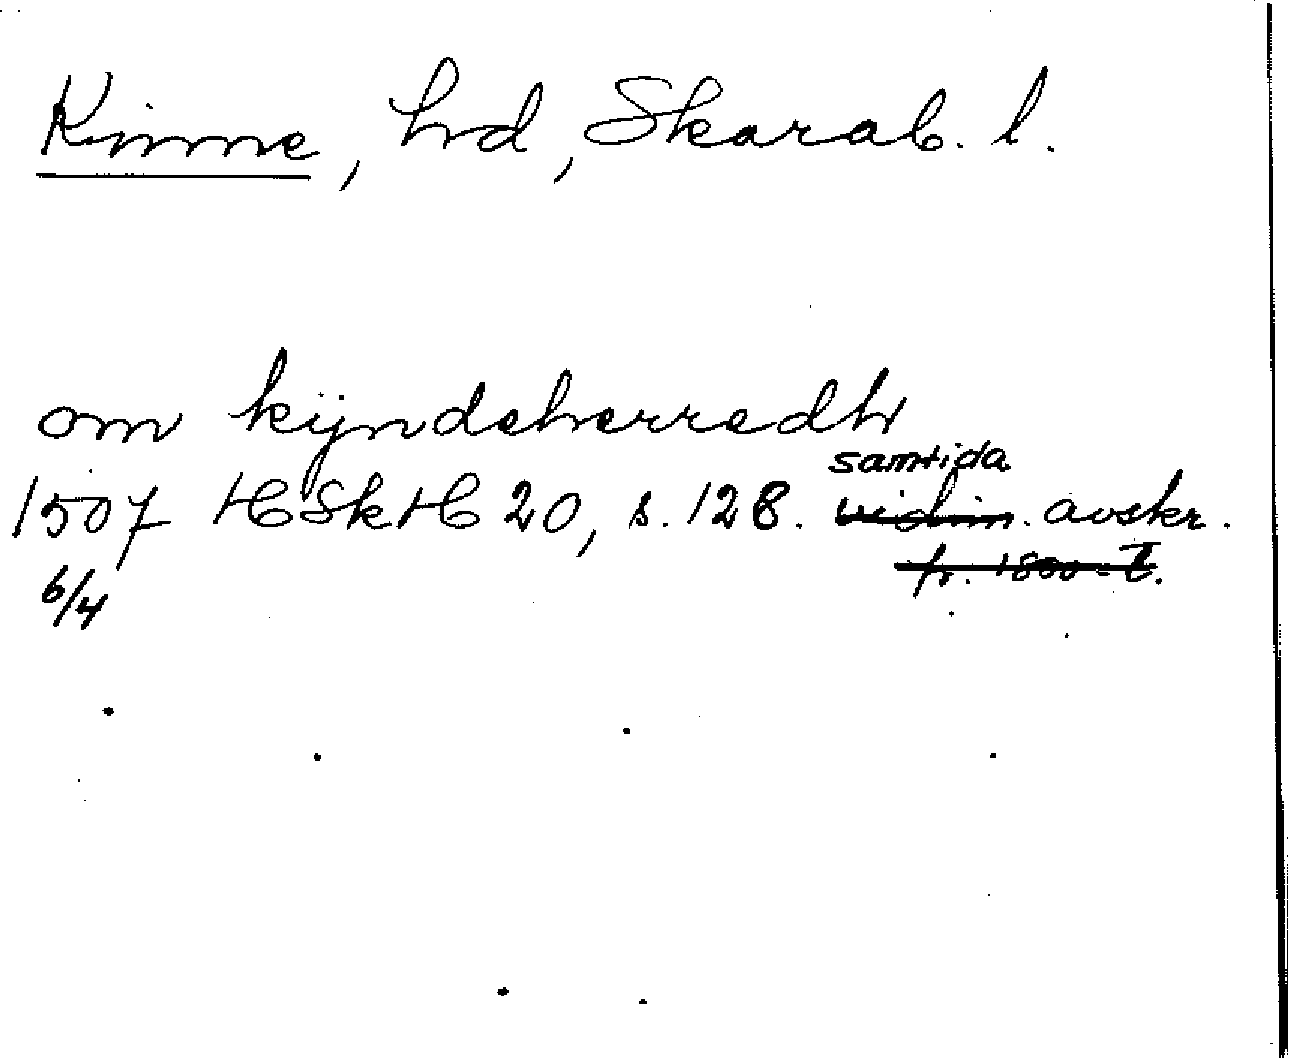 Kinne, hd, Skarab. l.
om kijndeherredh
samtida
1507 HSkH 20, s. 128. vidim. avskr.
6/4 fr. 1800-t.